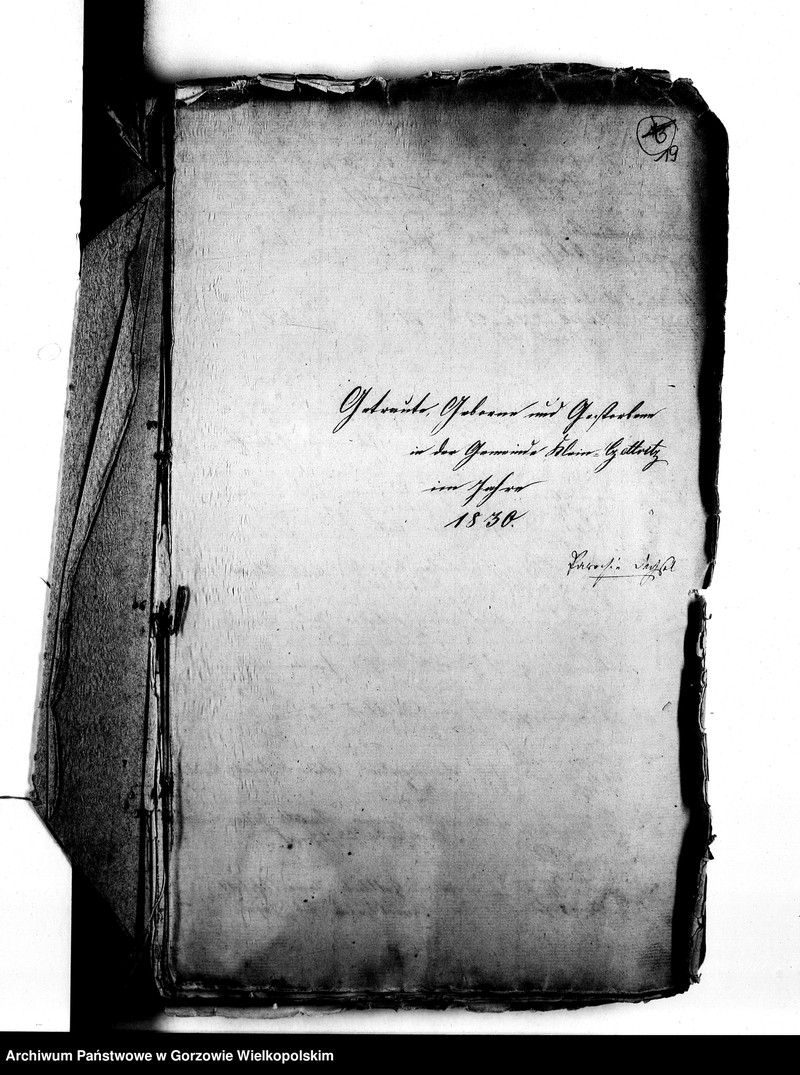 19
Getraute, Geborne und Gestorbene
in der Gemeinde Klein-Czettritz
im Jahre
1830.
Parochie
Archiwum Państwowe w Gorzowie Wielkopolskim